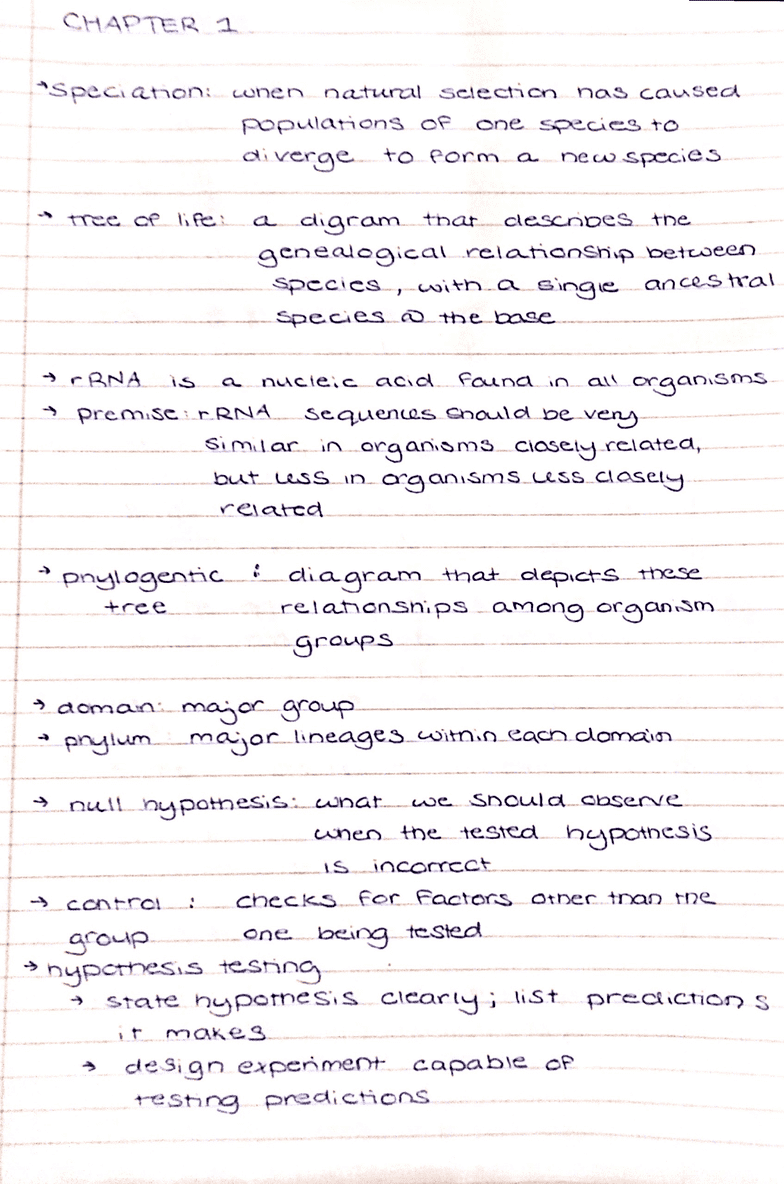 CHAPTER 1
→ speciation: when natural selection has caused
populations of one species to
diverge to form a new species
→ tree of life: a digram that describes the
genealogical relationship between
species, with a single ancestral
species @ the base
→ rRNA is a nucleic acid found in all organisms
→ premise: rRNA sequences should be very
similar in organisms closely related,
but less in organisms less closely
related
→ phylogentic : diagram that depicts these
tree relationships among organism
groups
→ domain: major group
→ phylum: major lineages within each domain
→ null hypothesis: what we should observe
when the tested hypothesis
is incorrect
→ control : checks for factors other than the
group one being tested
→ hypothesis testing
→ state hypothesis clearly; list predictions
it makes
→ design experiment capable of
testing predictions